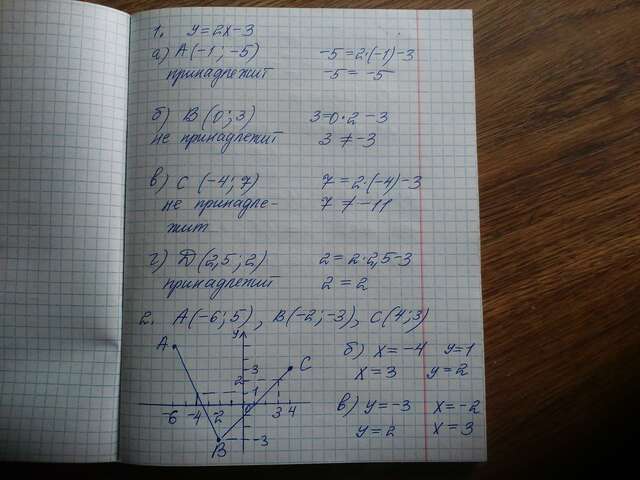 1. y=2x-3
а) A(-1; -5) -5=2·(-1)-3
принадлежит -5 = -5
б) B(0; 3) 3=0·2-3
не принадлежит 3 ≠ -3
в) C (-4; 7) 7=2·(-4)-3
не принадле- 7 ≠ -11
жит
г) D(2,5; 2) 2=2·2,5-3
принадлежит 2 = 2
2. A(-6; 5), B(-2; -3), C(4; 3)
A y
C
3
2
1
-6 -4 -2 0 3 4
-3
B
б) x=-4 y=1
x=3 y=2
в) y=-3 x=-2
y=2 x=3